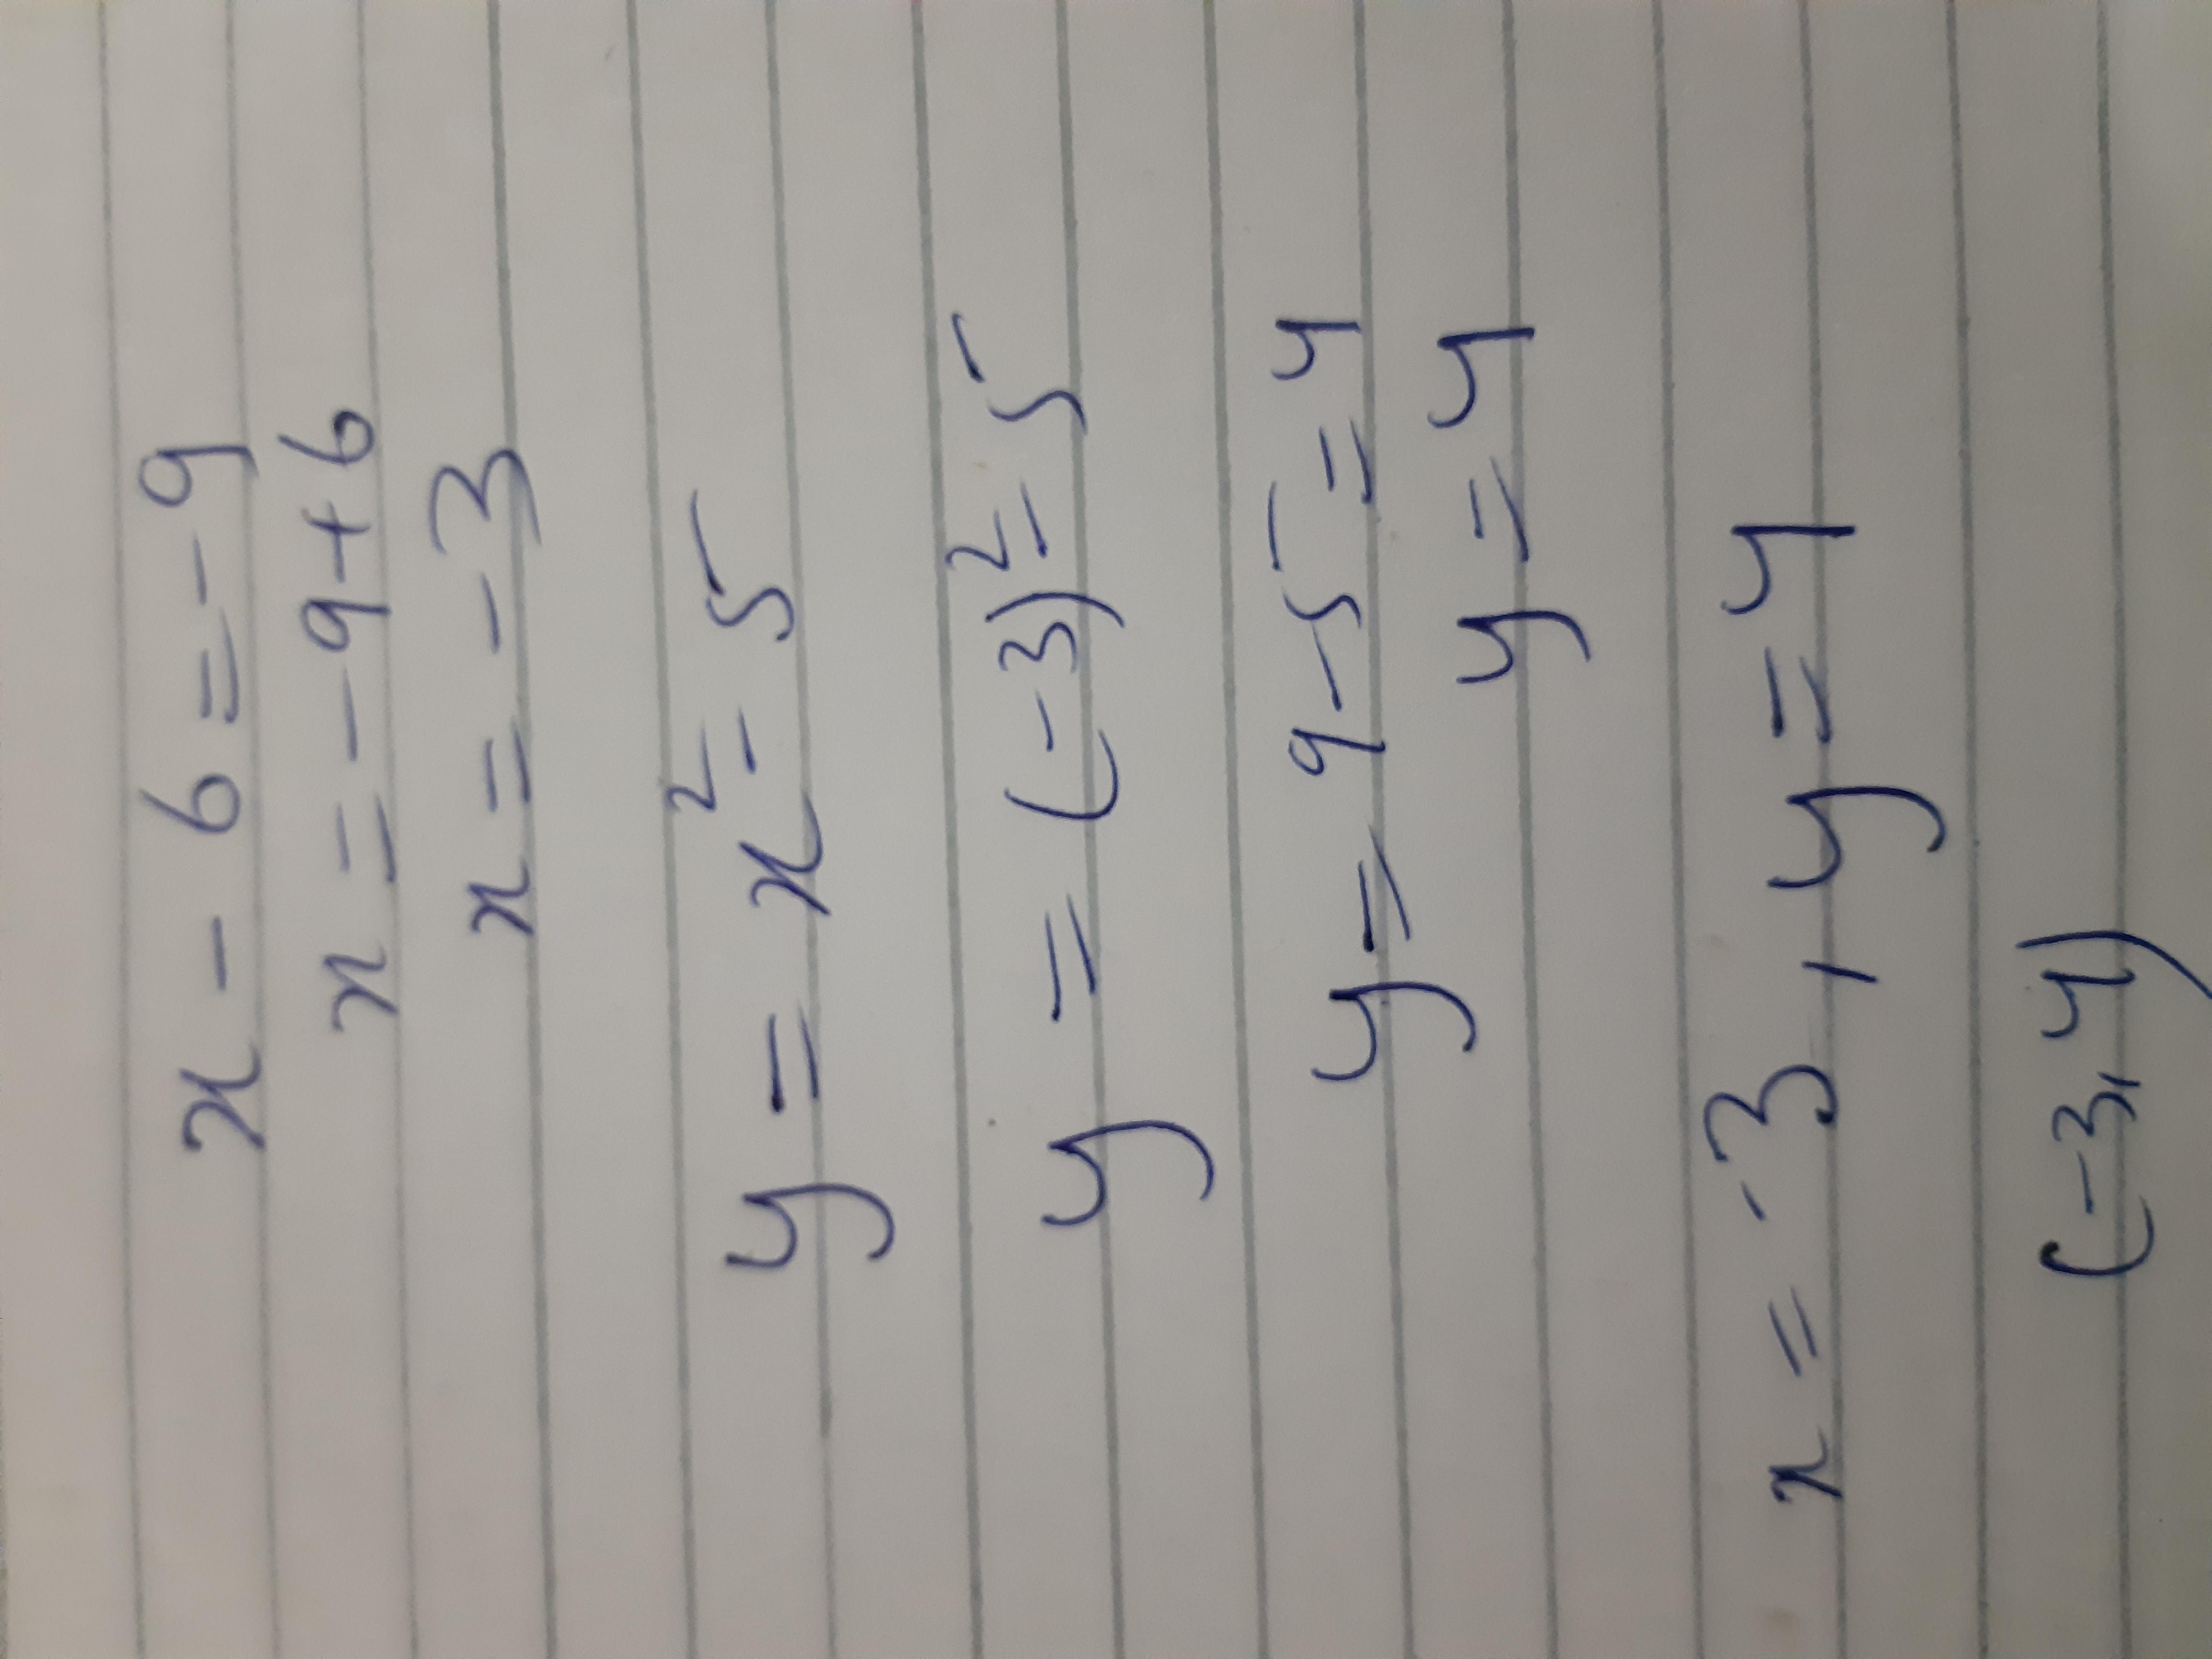 x - 6 = -9
x = -9+6
x = -3
y = x² - 5
y = (-3)² - 5
y = 9-5 = 4
y = 4
x = -3, y = 4
(-3, 4)